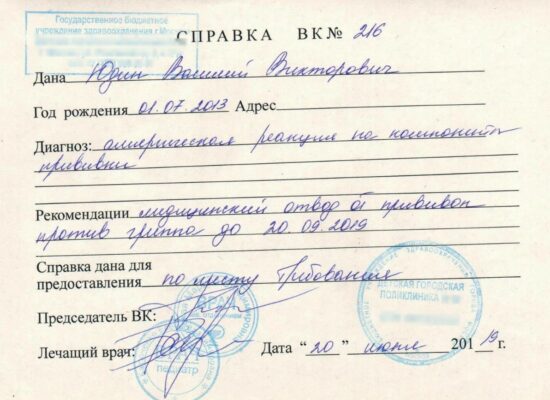 Государственное бюджетное
учреждение здравоохранения г.
СПРАВКА ВК № 216
Дана Юдин Василий Викторович
Год рождения 01.07.2013 Адрес
Диагноз: аллергическая реакция на компоненты
прививки
Рекомендации медицинский отвод от прививок
против гриппа до 20.09.2019
Справка дана для
предоставления по месту требования
Председатель ВК:
Лечащий врач:
Дата “20” июня 2019 г.
ДЕТСКАЯ ГОРОДСКАЯ
ПОЛИКЛИНИКА
педиатр